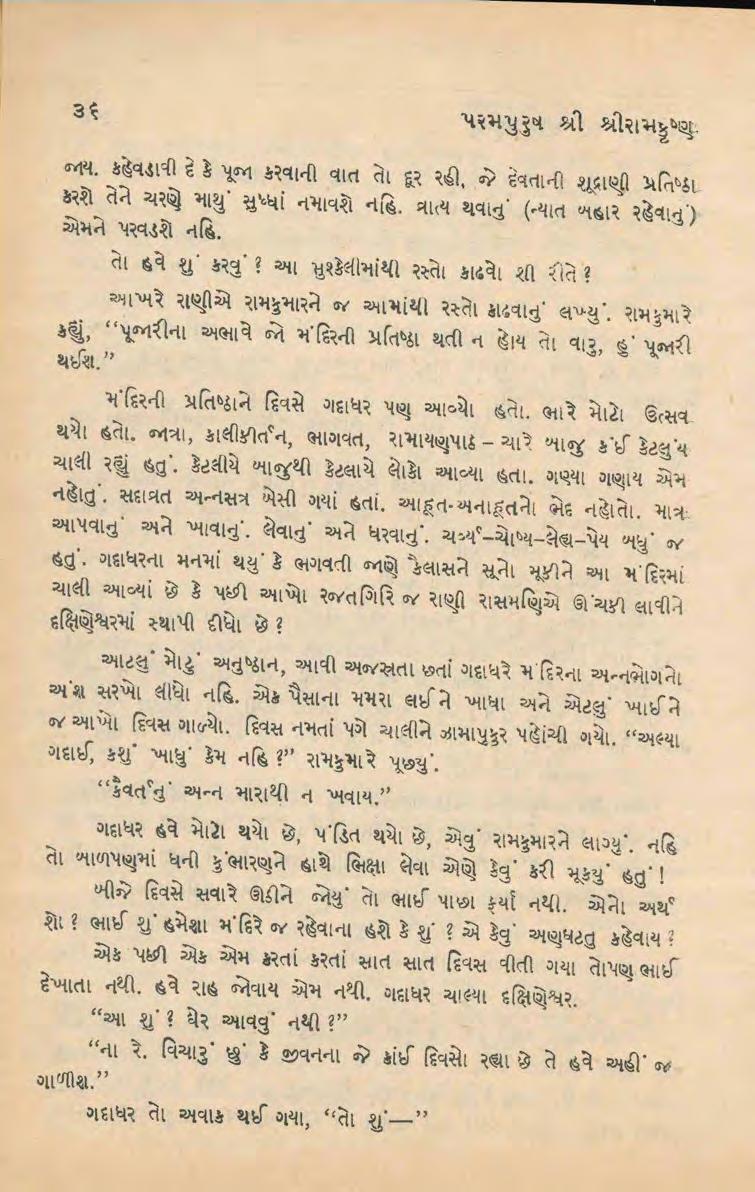 ૩૬
પરમપુરુષ શ્રી શ્રીરામકૃષ્ણ
જાય. કહેવડાવી દે કે પૂજા કરવાની વાત તો દૂર રહી, જે દેવતાની શૂદ્રાણી પ્રતિષ્ઠા
કરશે તેને ચરણે માથું સુધ્ધાં નમાવશે નહિ. વ્રાત્ય થવાનું (ન્યાત બહાર રહેવાનું)
એમને પરવડશે નહિ.
તો હવે શું કરવું ? આ મુશ્કેલીમાંથી રસ્તો કાઢવો શી રીતે ?
આખરે રાણીએ રામકુમારને જ આમાંથી રસ્તો કાઢવાનું લખ્યું. રામકુમારે
કહ્યું, “પૂજારીના અભાવે જો મંદિરની પ્રતિષ્ઠા થતી ન હોય તો વારુ, હું પૂજારી
થઈશ.”
મંદિરની પ્રતિષ્ઠાને દિવસે ગદાધર પણ આવ્યો હતો. ભારે મોટો ઉત્સવ
થયો હતો. જાત્રા, કાલીકીર્તન, ભાગવત, રામાયણપાઠ – ચારે બાજુ કંઈ કેટલુંય
ચાલી રહ્યું હતું. કેટલીયે બાજુથી કેટલાયે લોકો આવ્યા હતા. ગણ્યા ગણાય એમ
નહોતું. સદાવ્રત અન્નસત્ર બેસી ગયાં હતાં. આહૂત-અનાહૂતનો ભેદ નહોતો. માત્ર
આપવાનું અને ખાવાનું. લેવાનું અને ધરવાનું. ચર્વ્ય–ચોષ્ય–લેહ્ય–પેય બધું જ
હતું. ગદાધરના મનમાં થયું કે ભગવતી જાણે કૈલાસને સૂનો મૂકીને આ મંદિરમાં
ચાલી આવ્યાં છે કે પછી આખો રજતગિરિ જ રાણી રાસમણિએ ઊંચકી લાવીને
દક્ષિણેશ્વરમાં સ્થાપી દીધો છે ?
આટલું મોટું અનુષ્ઠાન, આવી અજસ્રતા છતાં ગદાધરે મંદિરના અન્નભોગનો
અંશ સરખો લીધો નહિ. એક પૈસાના મમરા લઈને ખાધા અને એટલું ખાઈને
જ આખો દિવસ ગાળ્યો. દિવસ નમતાં પગે ચાલીને ઝામાપુકુર પહોંચી ગયો. “અલ્યા
ગદાઈ, કશું ખાધું કેમ નહિ ?” રામકુમારે પૂછયું.
“કૈવર્તનું અન્ન મારાથી ન ખવાય.”
ગદાધર હવે મોટો થયો છે, પંડિત થયો છે, એવું રામકુમારને લાગ્યું. નહિ
તો બાળપણમાં ધની કુંભારણને હાથે ભિક્ષા લેવા એણે કેવું કરી મૂકયું હતું !
બીજે દિવસે સવારે ઊઠીને જોયું તો ભાઈ પાછા ફર્યા નથી. એનો અર્થ
શો ? ભાઈ શું હમેશા મંદિરે જ રહેવાના હશે કે શું ? એ કેવું અણઘટતુ કહેવાય ?
એક પછી એક એમ કરતાં કરતાં સાત સાત દિવસ વીતી ગયા તોપણ ભાઈ
દેખાતા નથી. હવે રાહ જોવાય એમ નથી. ગદાધર ચાલ્યા દક્ષિણેશ્વર.
“આ શું ? ઘેર આવવું નથી ?”
“ના રે. વિચારું છું કે જીવનના જે કાંઈ દિવસો રહ્યા છે તે હવે અહીં જ
ગાળીશ.”
ગદાધર તો અવાક થઈ ગયા, “તો શું—”